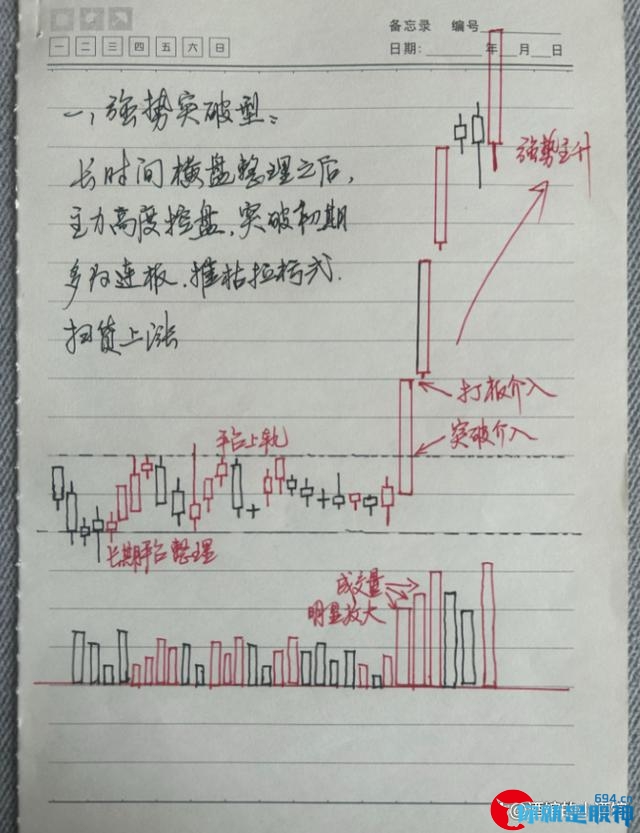 备忘录 编号
一 二 三 四 五 六 日
日期: 年 月 日
一、强势突破型:
长时间横盘整理之后,
主力高度控盘,突破初期
多为连板,推枯拉朽式
扫货上涨
强势主升
打板介入
突破介入
平台上轨
长期平台整理
成交量
明显放大
694.cn
环球是股神